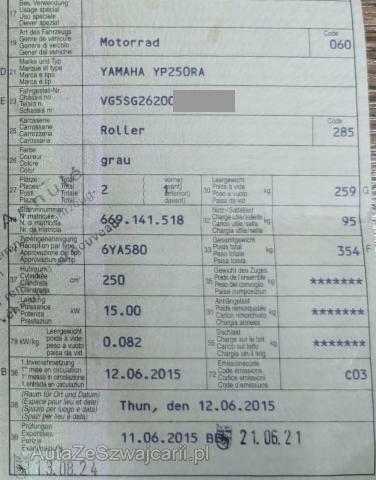 Bes. Verwendung
17 Usage spécial
Uso speciale
Diever spezial
Art des Fahrzeugs Code
19 Genre de véhicule Motorrad 060
Genere di veicolo
Gener dal vehichel
Marke und Typ
D 21 Marque et type YAMAHA YP250RA
Marca e tipo
Marca e tip
Fahrgestell-Nr.
E 23 Châssis no VG5SG26200
Telaio n.
Schassis nr.
Karosserie Code
25 Carrosserie Roller 285
Carrozzeria
Carossaria
Farbe
26 Couleur grau
Colore
Colur
Plätze: Total vorne Leergewicht
27 Places: Total 2 1 30 Poids à vide kg 259 G
Posti: Totale anteriori Peso a vuoto
Plazs: Total davant Paisa da vid
Stammnummer Nutz-/Sattellast
No matricule 669.141.518 32 Charge utile/sellette kg 95
N. di matricola Carico utile/sella
Nr. da matricla Chargia utila/sella
Typengenehmigung Gesamtgewicht
Réception par type 6YA580 33 Poids total kg 354 F
Approvazione del tipo Peso totale
Approvaziun dal tip Paisa totala
Hubraum Gewicht des Zuges
37 Cylindrée cm³ 250 35 Poids de l'ensemble kg *******
Cilindrata Peso del convoglio
Cilindrada Paisa cumposiziun
Leistung Anhängelast
Puissance kW 15.00 31 Poids remorquable kg *******
Potenza Carico rimorchiato
Prestaziun Chargia annexa
Leergewicht Dachlast
78 kW/kg poids à vide 0.082 55 Charge sur le toit kg *******
peso a vuoto Carico sul tetto
paisa da vid Chargia sin il tetg
1. Inverkehrsetzung Emissionscode
B 36 1re mise en circulation 12.06.2015 72 Code émissions c03
1. messa in circolazione Codice emissioni
1. entrada en circulaziun Code d'emissiuns
(Raum für Ort und Datum)
38 (Espace pour lieu et date) Thun, den 12.06.2015
(Spazio per luogo e data)
(Spazi per lieu e data)
Prüfungen
39 Expertises 11.06.2015 BE 21.06.21
Perizie
Examinaziuns
13.08.24
AutaZeSzwajcarii.pl